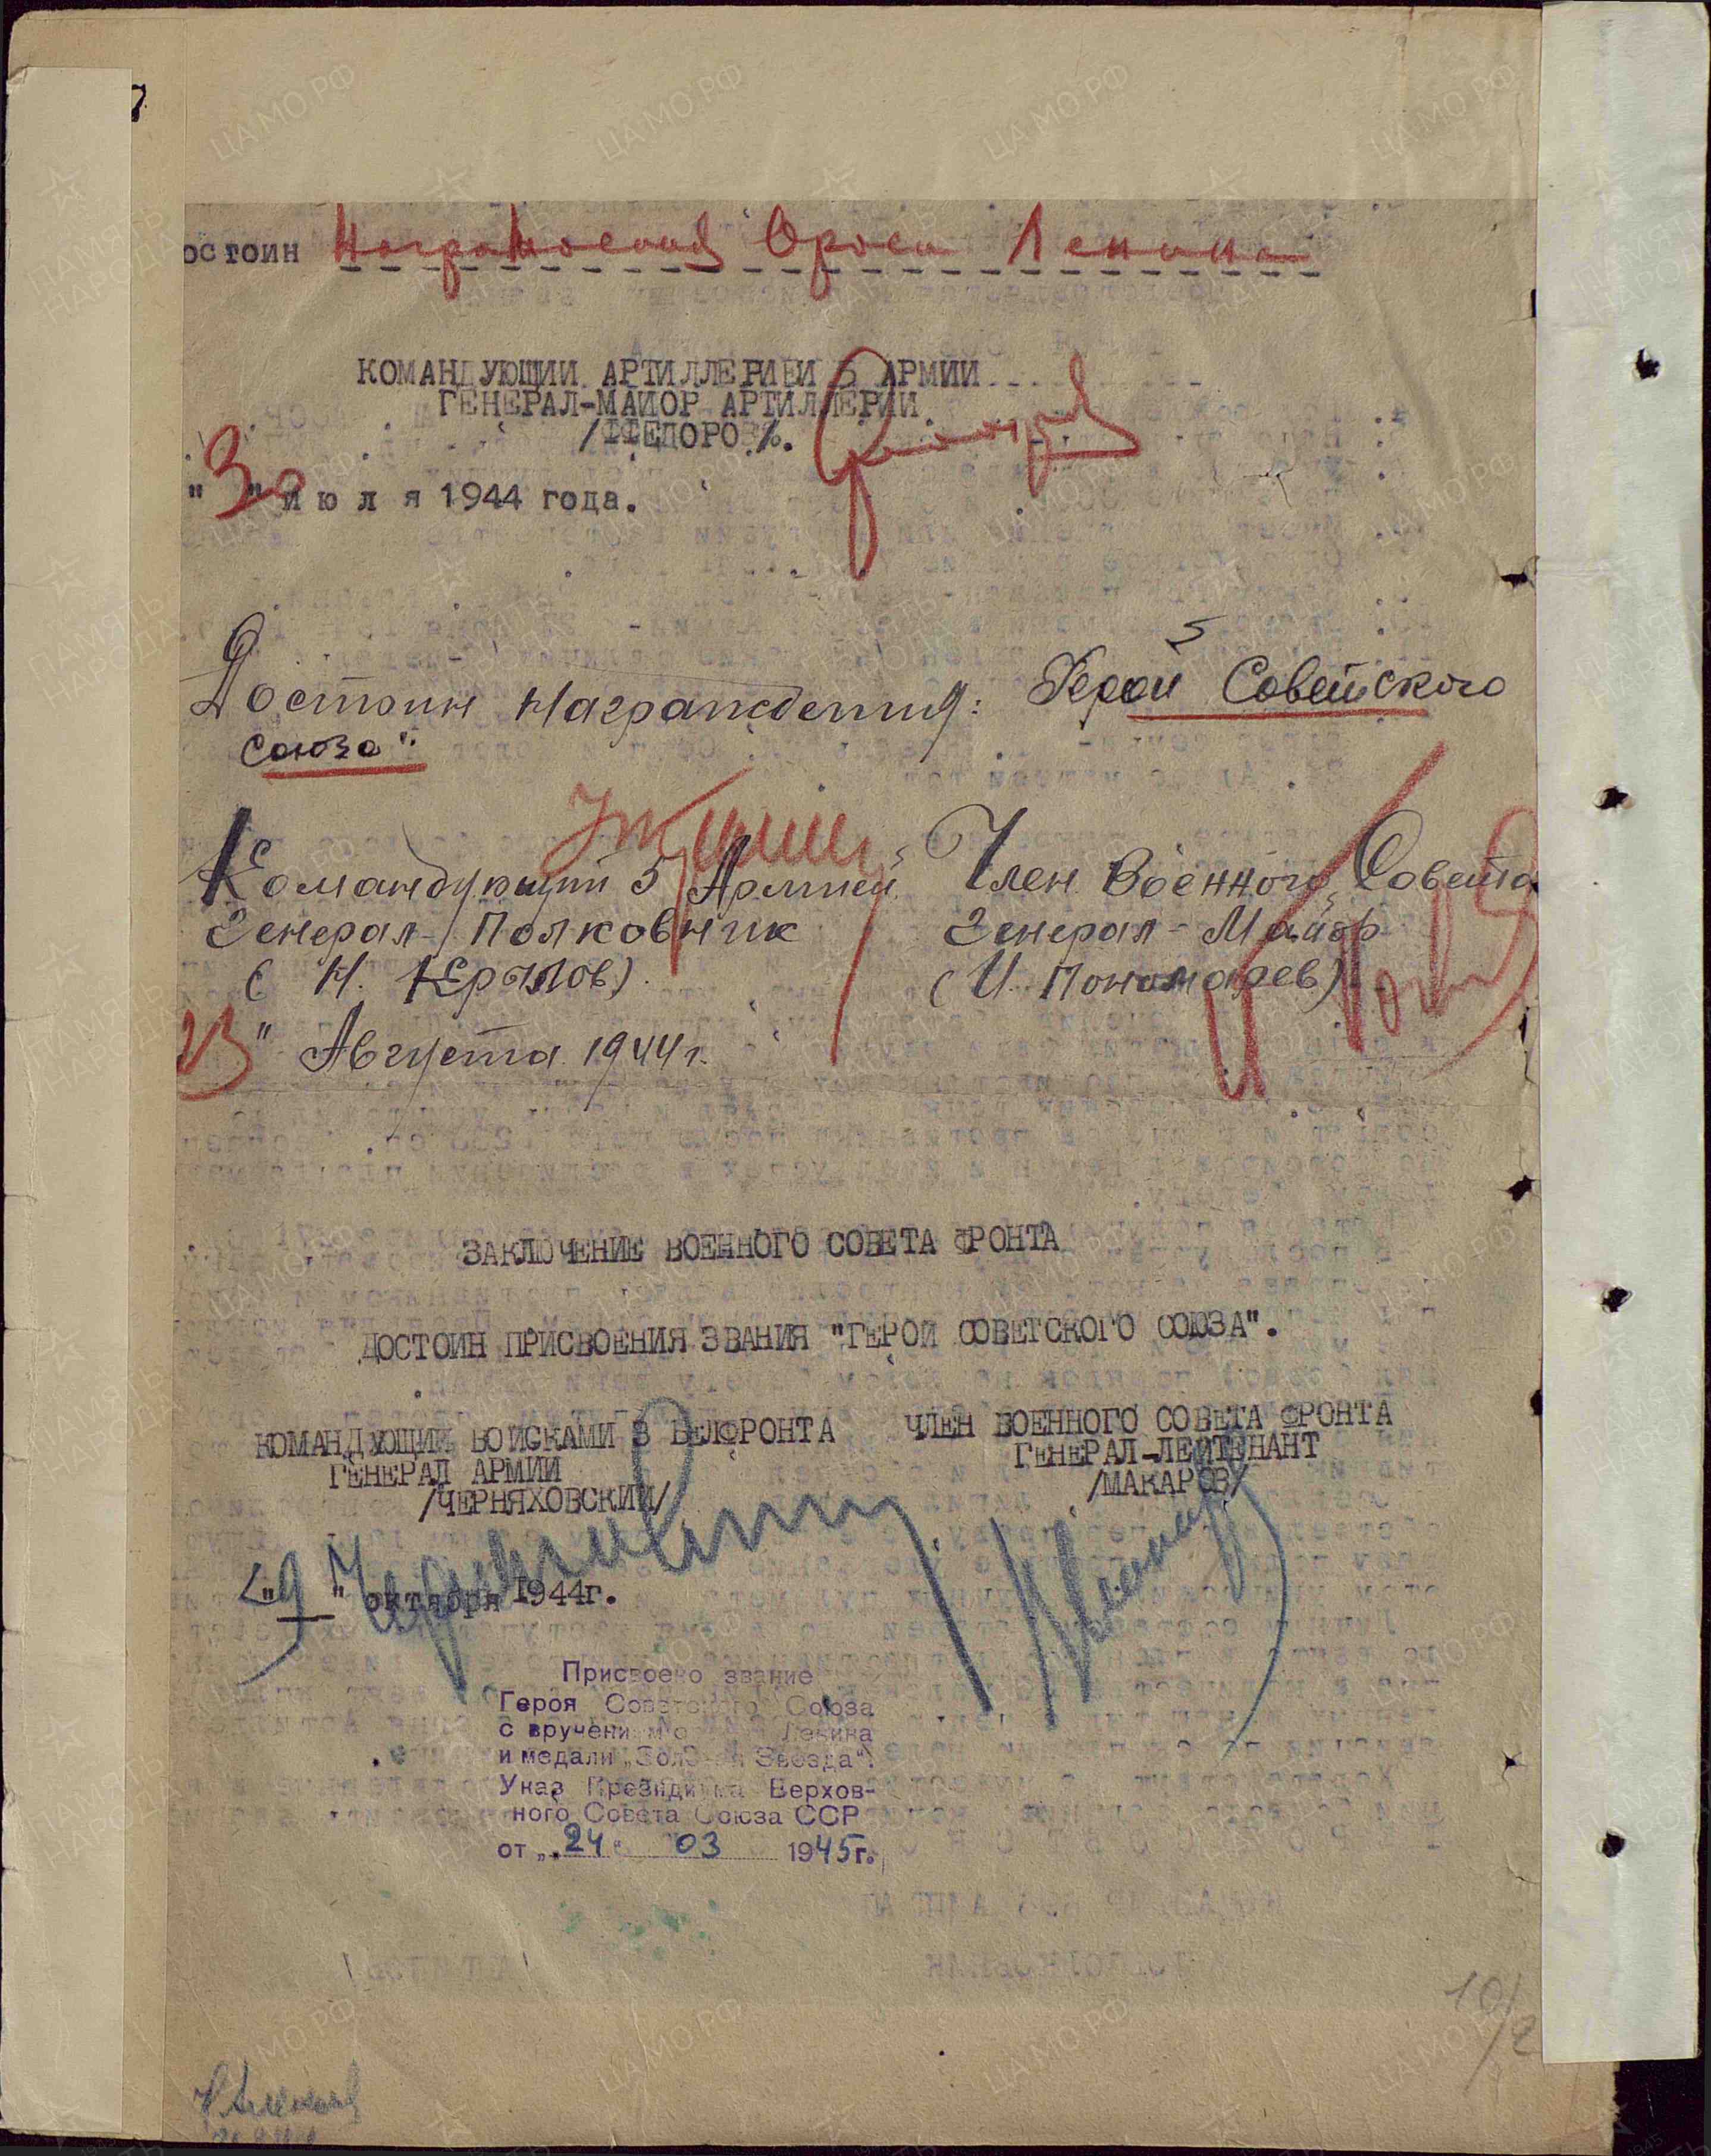 остоин Награждения Орден Ленина
КОМАНДУЮЩИЙ АРТИЛЛЕРИЕЙ 5 АРМИИ
ГЕНЕРАЛ-МАЙОР АРТИЛЛЕРИИ
/ФЕДОРОВ/.
"30" июля 1944 года.
Достоин награждения: Герой Советского
Союза".
Командующий 5 Армией
Генерал-Полковник
(Н. Крылов).
Член Военного Совета
Генерал-Майор
(И. Пономарев)
23" Августа 1944 г.
ЗАКЛЮЧЕНИЕ ВОЕННОГО СОВЕТА ФРОНТА
ДОСТОИН ПРИСВОЕНИЯ ЗВАНИЯ "ГЕРОЙ СОВЕТСКОГО СОЮЗА".
КОМАНДУЮЩИЙ ВОЙСКАМИ 3 БЕЛФРОНТА
ГЕНЕРАЛ АРМИИ
/ЧЕРНЯХОВСКИЙ/
ЧЛЕН ВОЕННОГО СОВЕТА ФРОНТА
ГЕНЕРАЛ-ЛЕЙТЕНАНТ
/МАКАРОВ/
" " октября 1944г.
Присвоено звание
Героя Советского Союза
с вручением ордена Ленина
и медали „Золотая Звезда".
Указ Президиума Верхов-
ного Совета Союза ССР
от „24" 03 1945г.
10/2